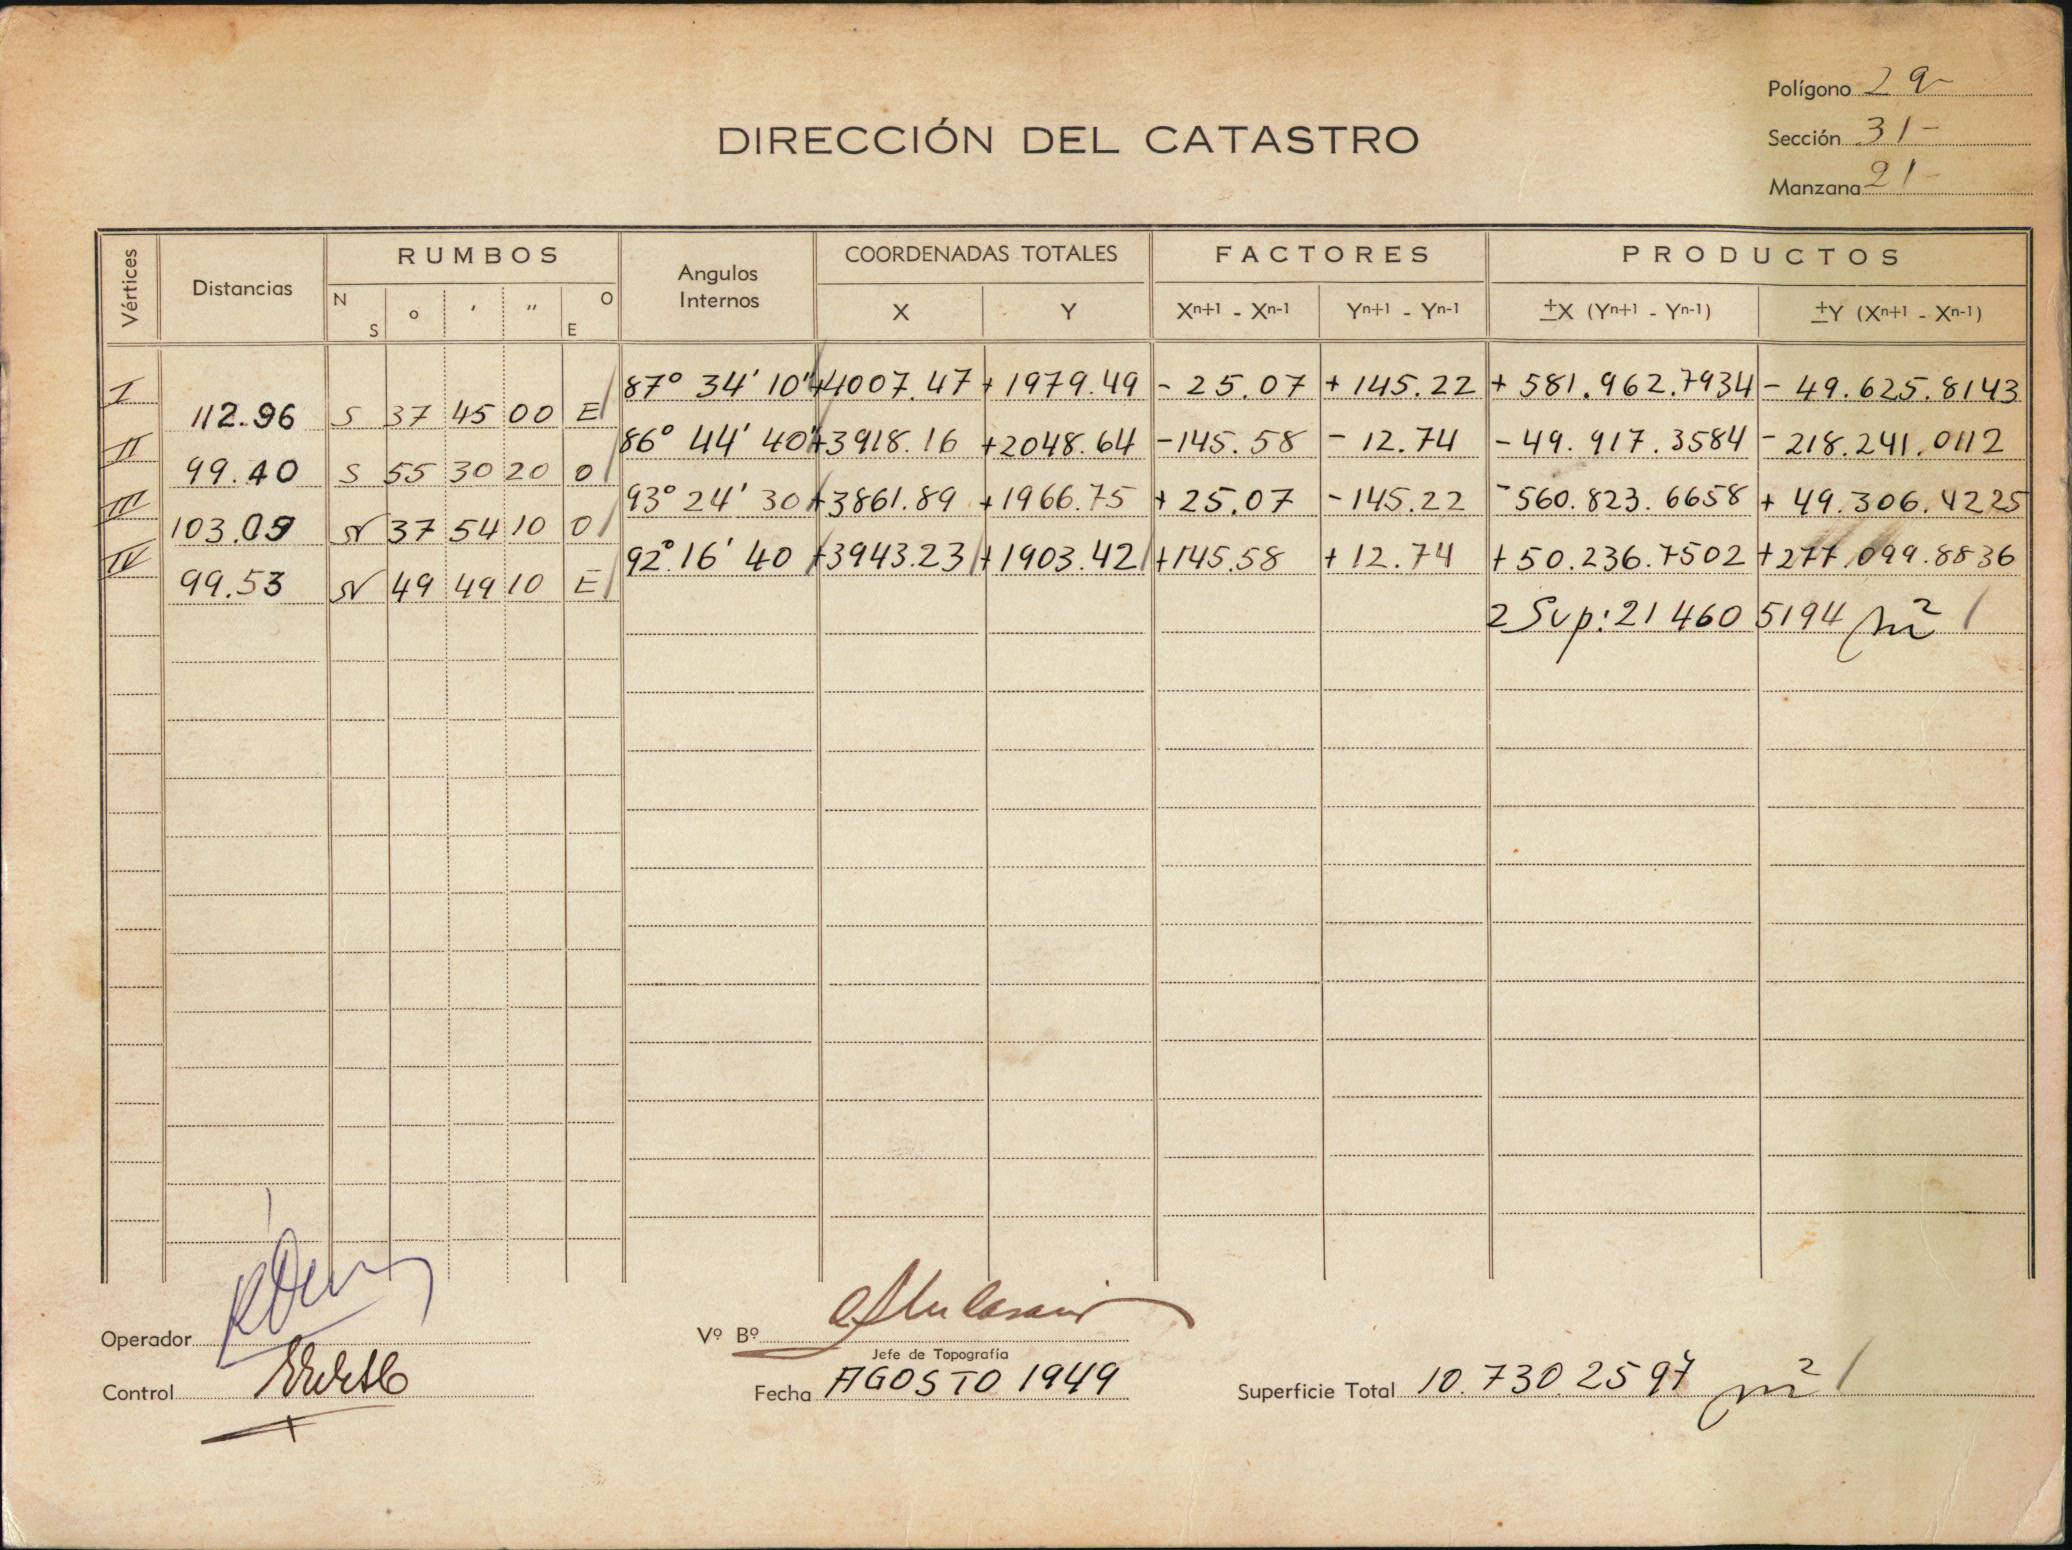 Polígono 29-
DIRECCIÓN DEL CATASTRO
Sección 31-
Manzana 21-
Vértices Distancias RUMBOS Angulos Internos COORDENADAS TOTALES FACTORES PRODUCTOS
N S o ' '' O E X Y Xn+1 - Xn-1 Yn+1 - Yn-1 ±X (Yn+1 - Yn-1) ±Y (Xn+1 - Xn-1)
I 87° 34' 10" +4007.47 +1979.49 -25.07 +145.22 +581.962.7934 -49.625.8143
112.96 S 37 45 00 E
II 86° 44' 40" +3918.16 +2048.64 -145.58 -12.74 -49.917.3584 -218.241.0112
99.40 S 55 30 20 O
III 93° 24' 30 +3861.89 +1966.75 +25.07 -145.22 -560.823.6658 +49.306.4225
103.09 N 37 54 10 O
IV 92° 16' 40 +3943.23 +1903.42 +145.58 +12.74 +50.236.7502 +277.099.8836
99.53 N 49 49 10 E
2 Sup: 21 460 5194 m²
Operador
Vº Bº
Jefe de Topografía
Control
Fecha AGOSTO 1949
Superficie Total 10.730.2597 m²